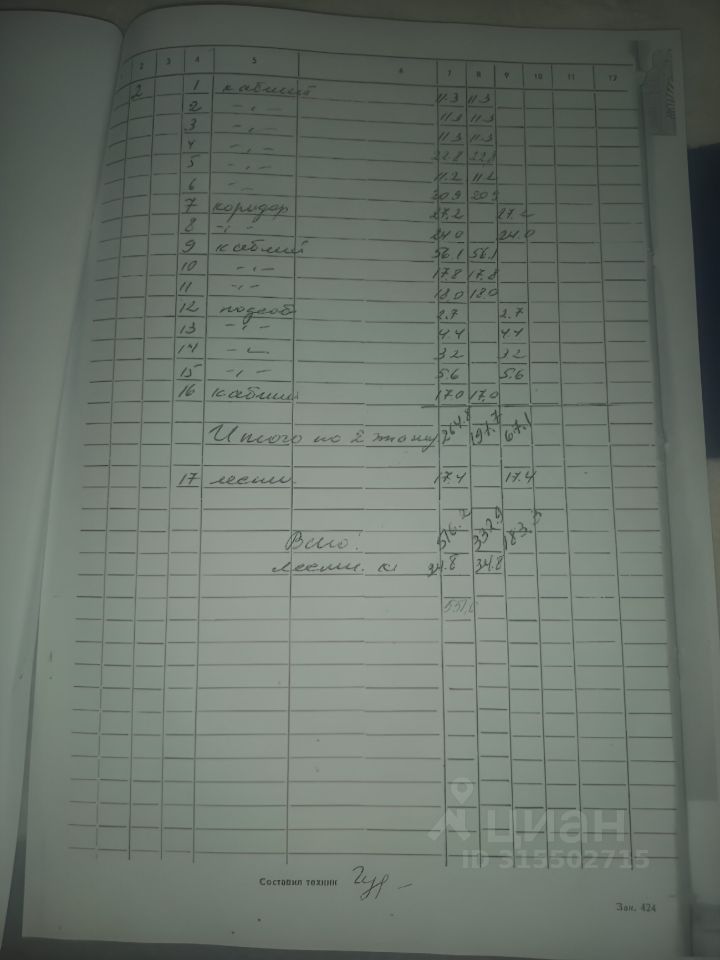 2 3 4 5 6 7 8 9 10 11 12
2 1 кабинет 11.3 11.3
2 -"- 11.3 11.3
3 -"- 11.3 11.3
4 -"- 22.8 22.8
5 -"- 11.2 11.2
6 -"- 20.9 20.9
7 коридор 27.2 27.2
8 -"- 24.0 24.0
9 кабинет 56.1 56.1
10 -"- 17.8 17.8
11 -"- 18.0 18.0
12 подсоб 2.7 2.7
13 -"- 4.4 4.4
14 -"- 3.2 3.2
15 -"- 5.6 5.6
16 кабинет 17.0 17.0
Итого по 2 этажу 264.8 197.7 67.1
17 лестн. 17.4 17.4
Всего: 516.2 332.9 183.3
лестн. кл 34.8 34.8
Составил техник
Зак. 424
циан
ID 315502715